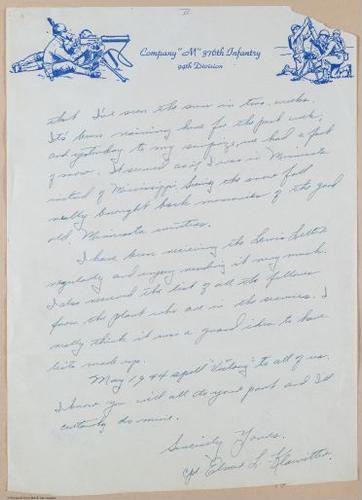 II
Company "M" 376th Infantry
94th Division
that I've seen the sun in two weeks.
It's been raining here for the past week,
and yesterday to my surprize, we had a foot
of snow. It seemed as if I was in Minnesota
instead of Mississippi. Seeing the snow fall
really brought back memories of the good
old Minnesota winters.
I have been reciving the Lewis Letter
regularly and enjoy reading it very much.
I also received the list of all the fellows
from the plant who are in the services. I
really think it was a grand idea to have
lists made up.
May 1944 spell "Victory" to all of us.
I know you will all do your part and I'll
certainly do mine.
Sincerely Yours,
Cpl. Elmer L. Klawitter